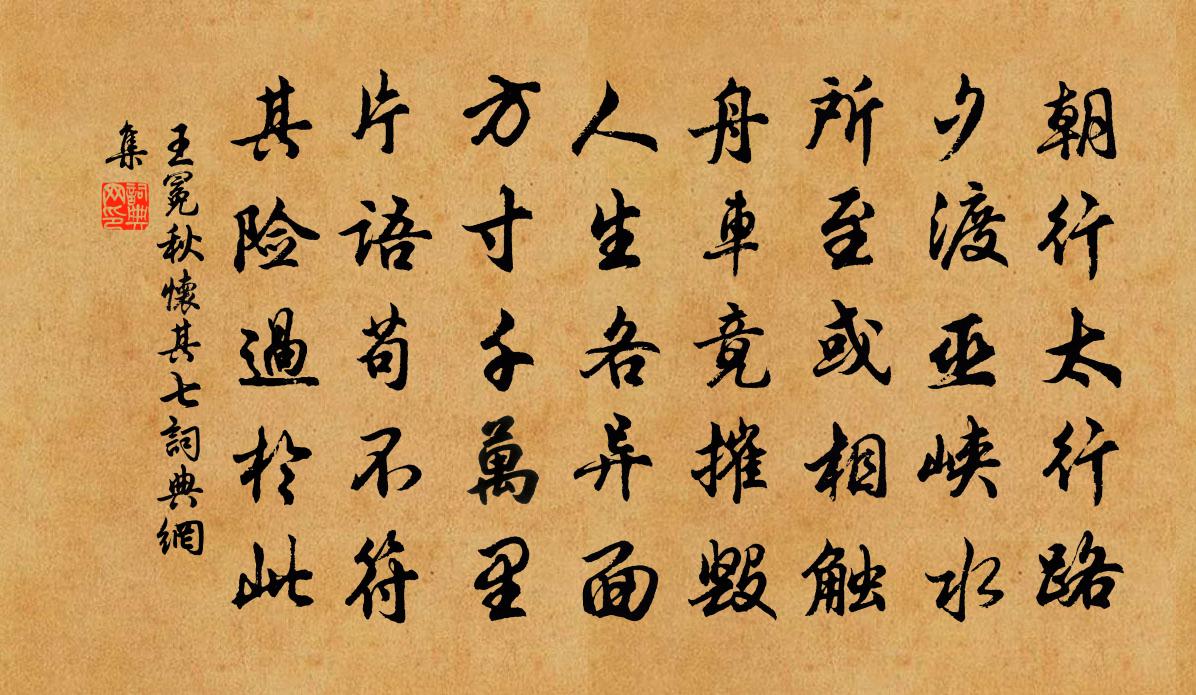 朝行太行路
夕渡巫峡水
所至或相触
舟車竟摧毀
人生各异面
方寸千萬里
片語苟不符
其险過於此
王冕秋懷其七詞典網
集
詞典
网印